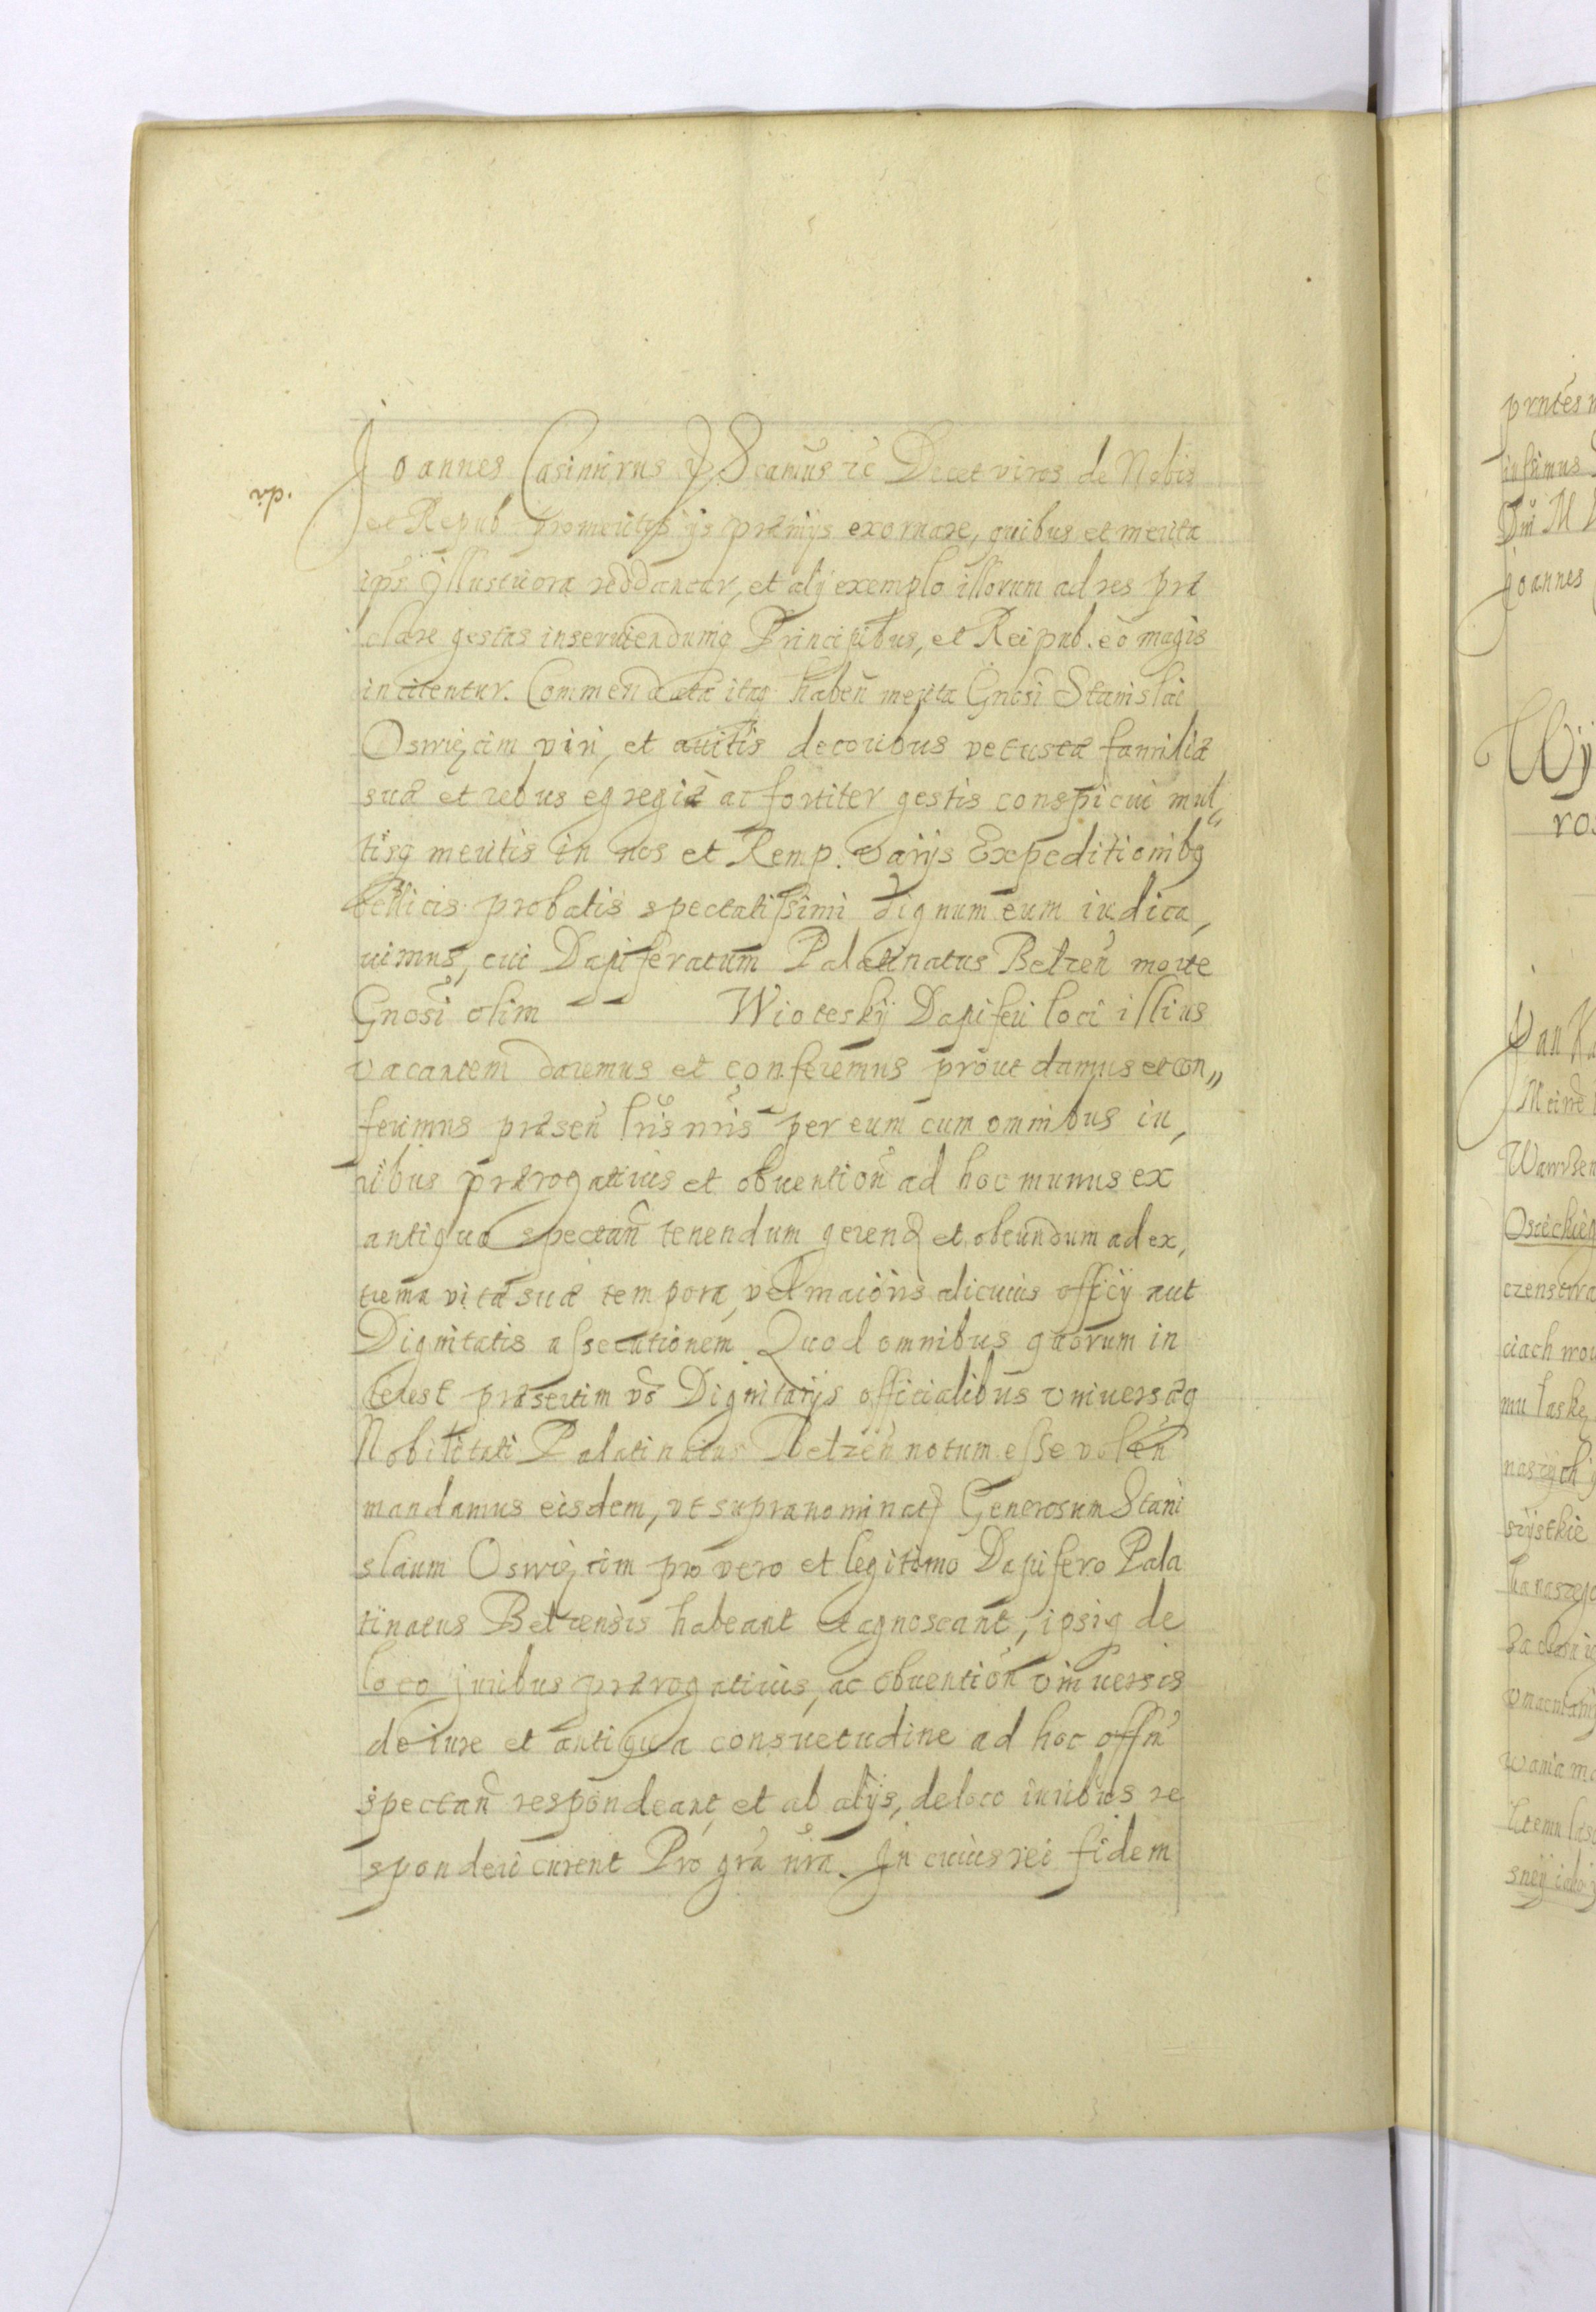 Joannes Casimirus etc Scamus rc Decet viros de Nobis
et Repub promeritos ijs præmijs exornare, quibus et merita
ipsr Jllustriora reddantur, et alij exemplo illorum ad res præ
clare gestas inseruiendumq Principibus, et Reipub. eo magis
incitentur. Commendata itaq haben merita Gnosi Stanislai
Oswięcim viri, et auitis decoribus vetustæ familiæ
suæ et rebus egregiè ac fortiter gestis conspicui mul„
tisq meritis in nos et Remp. varijs Expeditionibq
bellicis probatis spectatissimi dignum eum iudica,
uimus, cui Dapiferatum Palatinatus Belzen morte
Gnosi olim Wioteskij Dapiferi loci illius
vacantem daremus et conferemus prout damus et con„
ferimus præsen lris nris per eum cum omnibus iu,
ribus prærogatiuis et obuention ad hoc munus ex
antiquo spectan tenendum gerend et obeundum ad ex,
trema vitæ suæ tempora, vel maioris alicuius officij aut
Dignitatis assecutionem Quod omnibus quorum in
terest præsertim vo Dignitarijs officialibus vniversæq
Nobilitati Palatinatus Belzen notum esse volen
mandamus eisdem, vt supranominat Generosum Stani
slaum Oswięcim pro vero et legitimo Dapifero Pala
tinatus Belzensis habeant et agnoscant, ipsiq de
loco juribus prærogatiuis, ac obuention vniuersis
de iure et antiqua consuetudine ad hoc offm
spectan respondeant, et ab alijs, de loco iuribus re
sponderi curent Pro gra nra. Jn cuius rei fidem
prntes
Dni M
Joannes
Wy
ros
Pan Ka
Oscichień
ciach
mu laskę
naszych